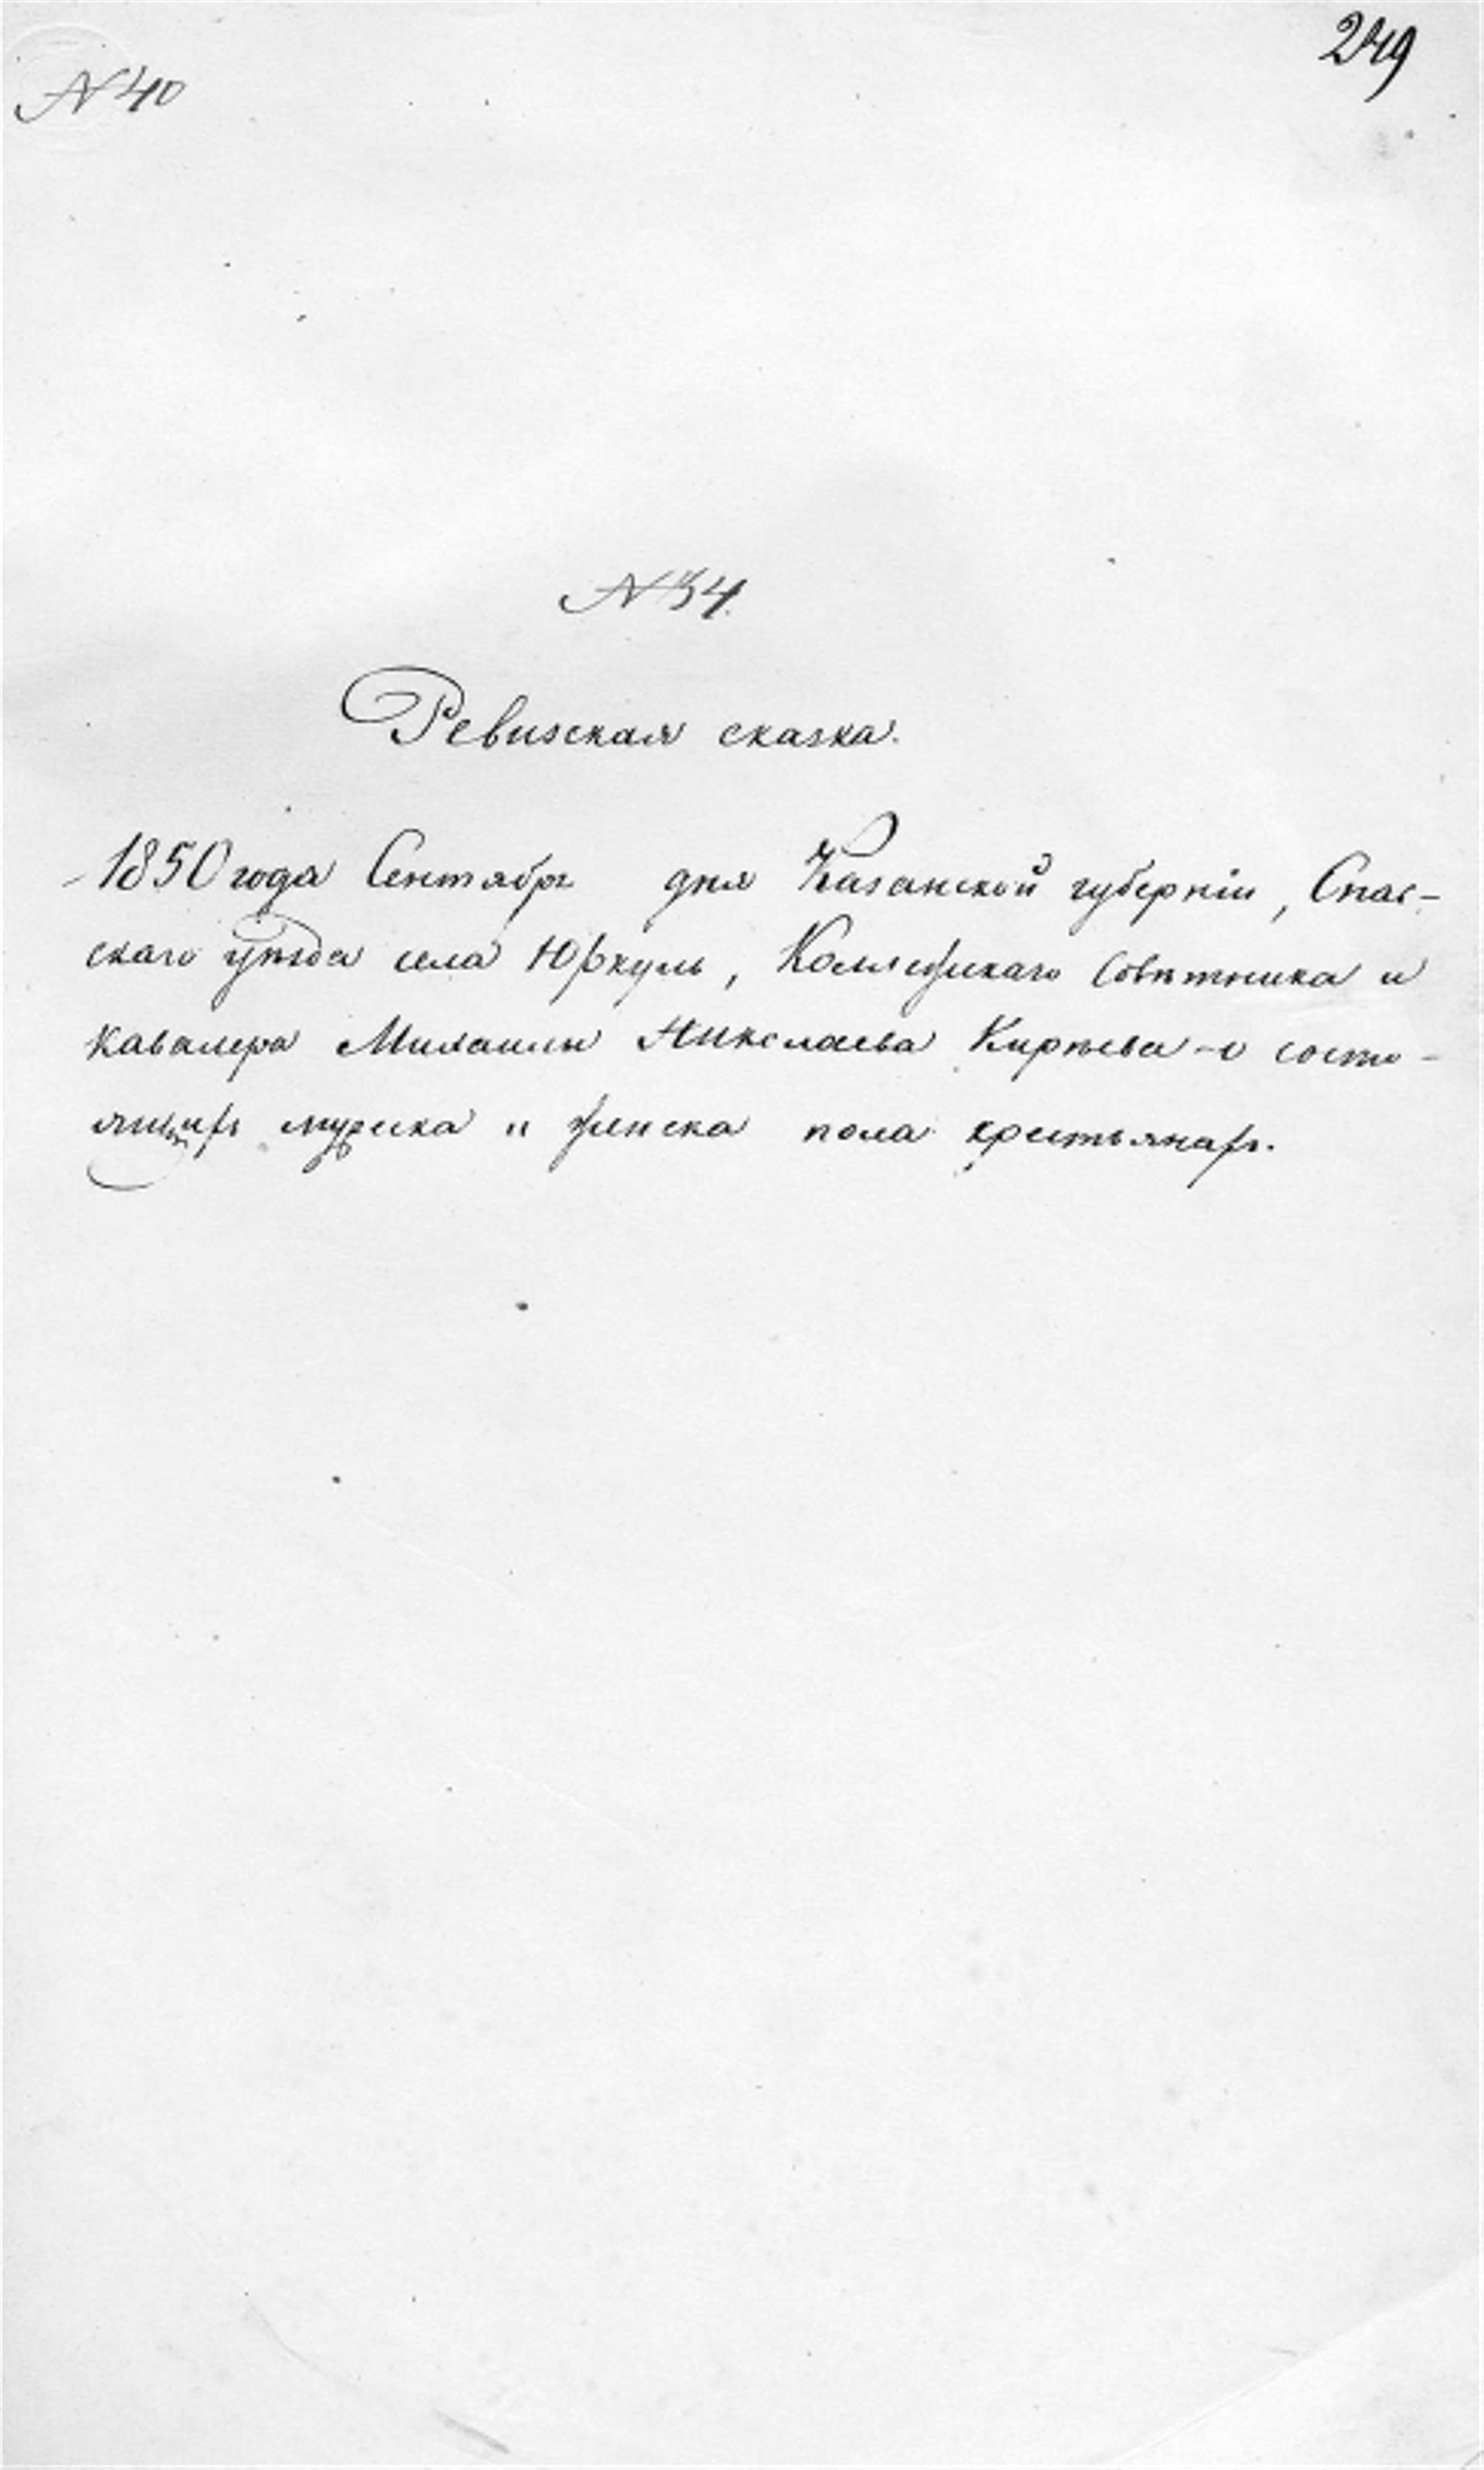 249
N 40
N 34.
Ревизская сказка.
1850 года Сентября дня Казанской губерніи, Спас-
скаго уѣзда села Юркуль, Коллежскаго Совѣтника и
Кавалера Михаилы Николаева Кирѣева - о состо-
ящихъ мужеска и женска пола крестьянахъ.